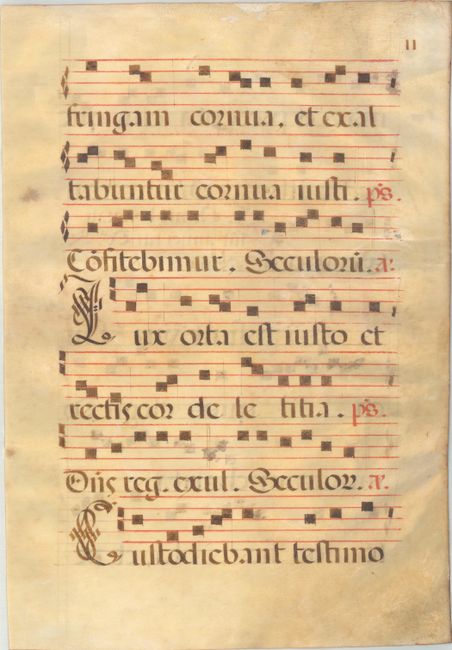 11
fringam cornua. et exal
tabuntur cornua iusti. ps.
Cōfitebimur. Seculorū. a:
Lux orta est iusto et
rectis cor de le titia. ps.
Dn̄s reg. exul. Seculor. æ.
Custodiebant testimo